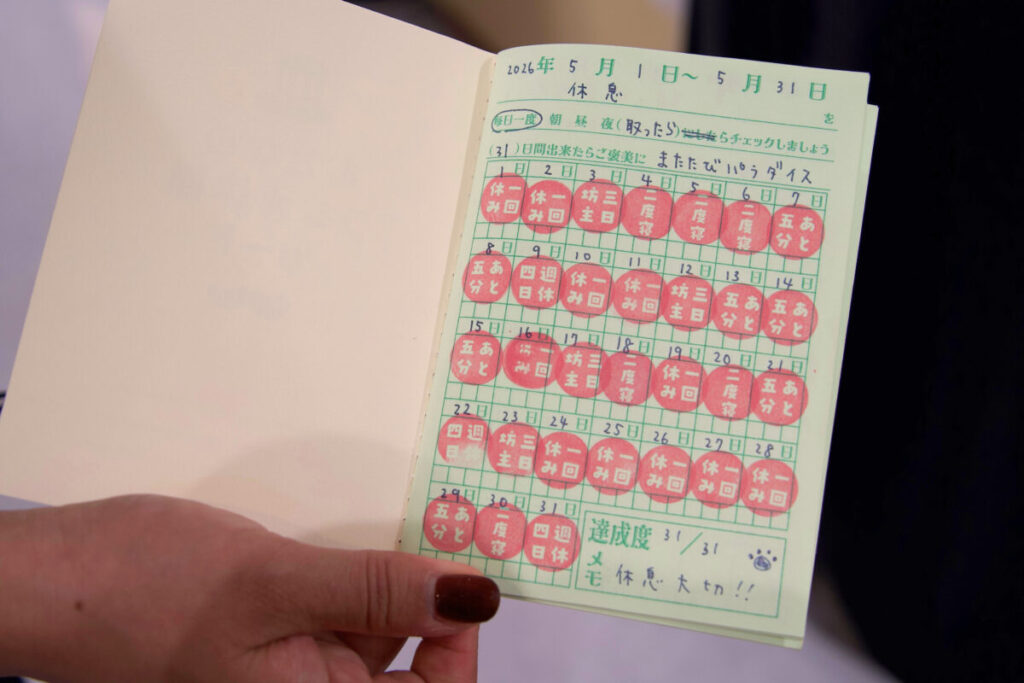 2026年 5月 1日～5月31日
休息 を
毎日一度 朝 昼 夜(取ったら) らチェックしましょう
(31)日間出来たらご褒美に またたびパラダイス
1日 2日 3日 4日 5日 6日 7日
一回休み 一回休み 三日坊主 二度寝 二度寝 二度寝 あと五分
8日 9日 10日 11日 12日 13日 14日
あと五分 週休四日 一回休み 一回休み 三日坊主 あと五分 あと五分
15日 16日 17日 18日 19日 20日 21日
あと五分 一回休み 三日坊主 二度寝 一回休み 二度寝 あと五分
22日 23日 24日 25日 26日 27日 28日
週休四日 三日坊主 一回休み 一回休み 一回休み 一回休み 一回休み
29日 30日 31日
あと五分 二度寝 週休四日
達成度 31/31
メモ 休息大切!!